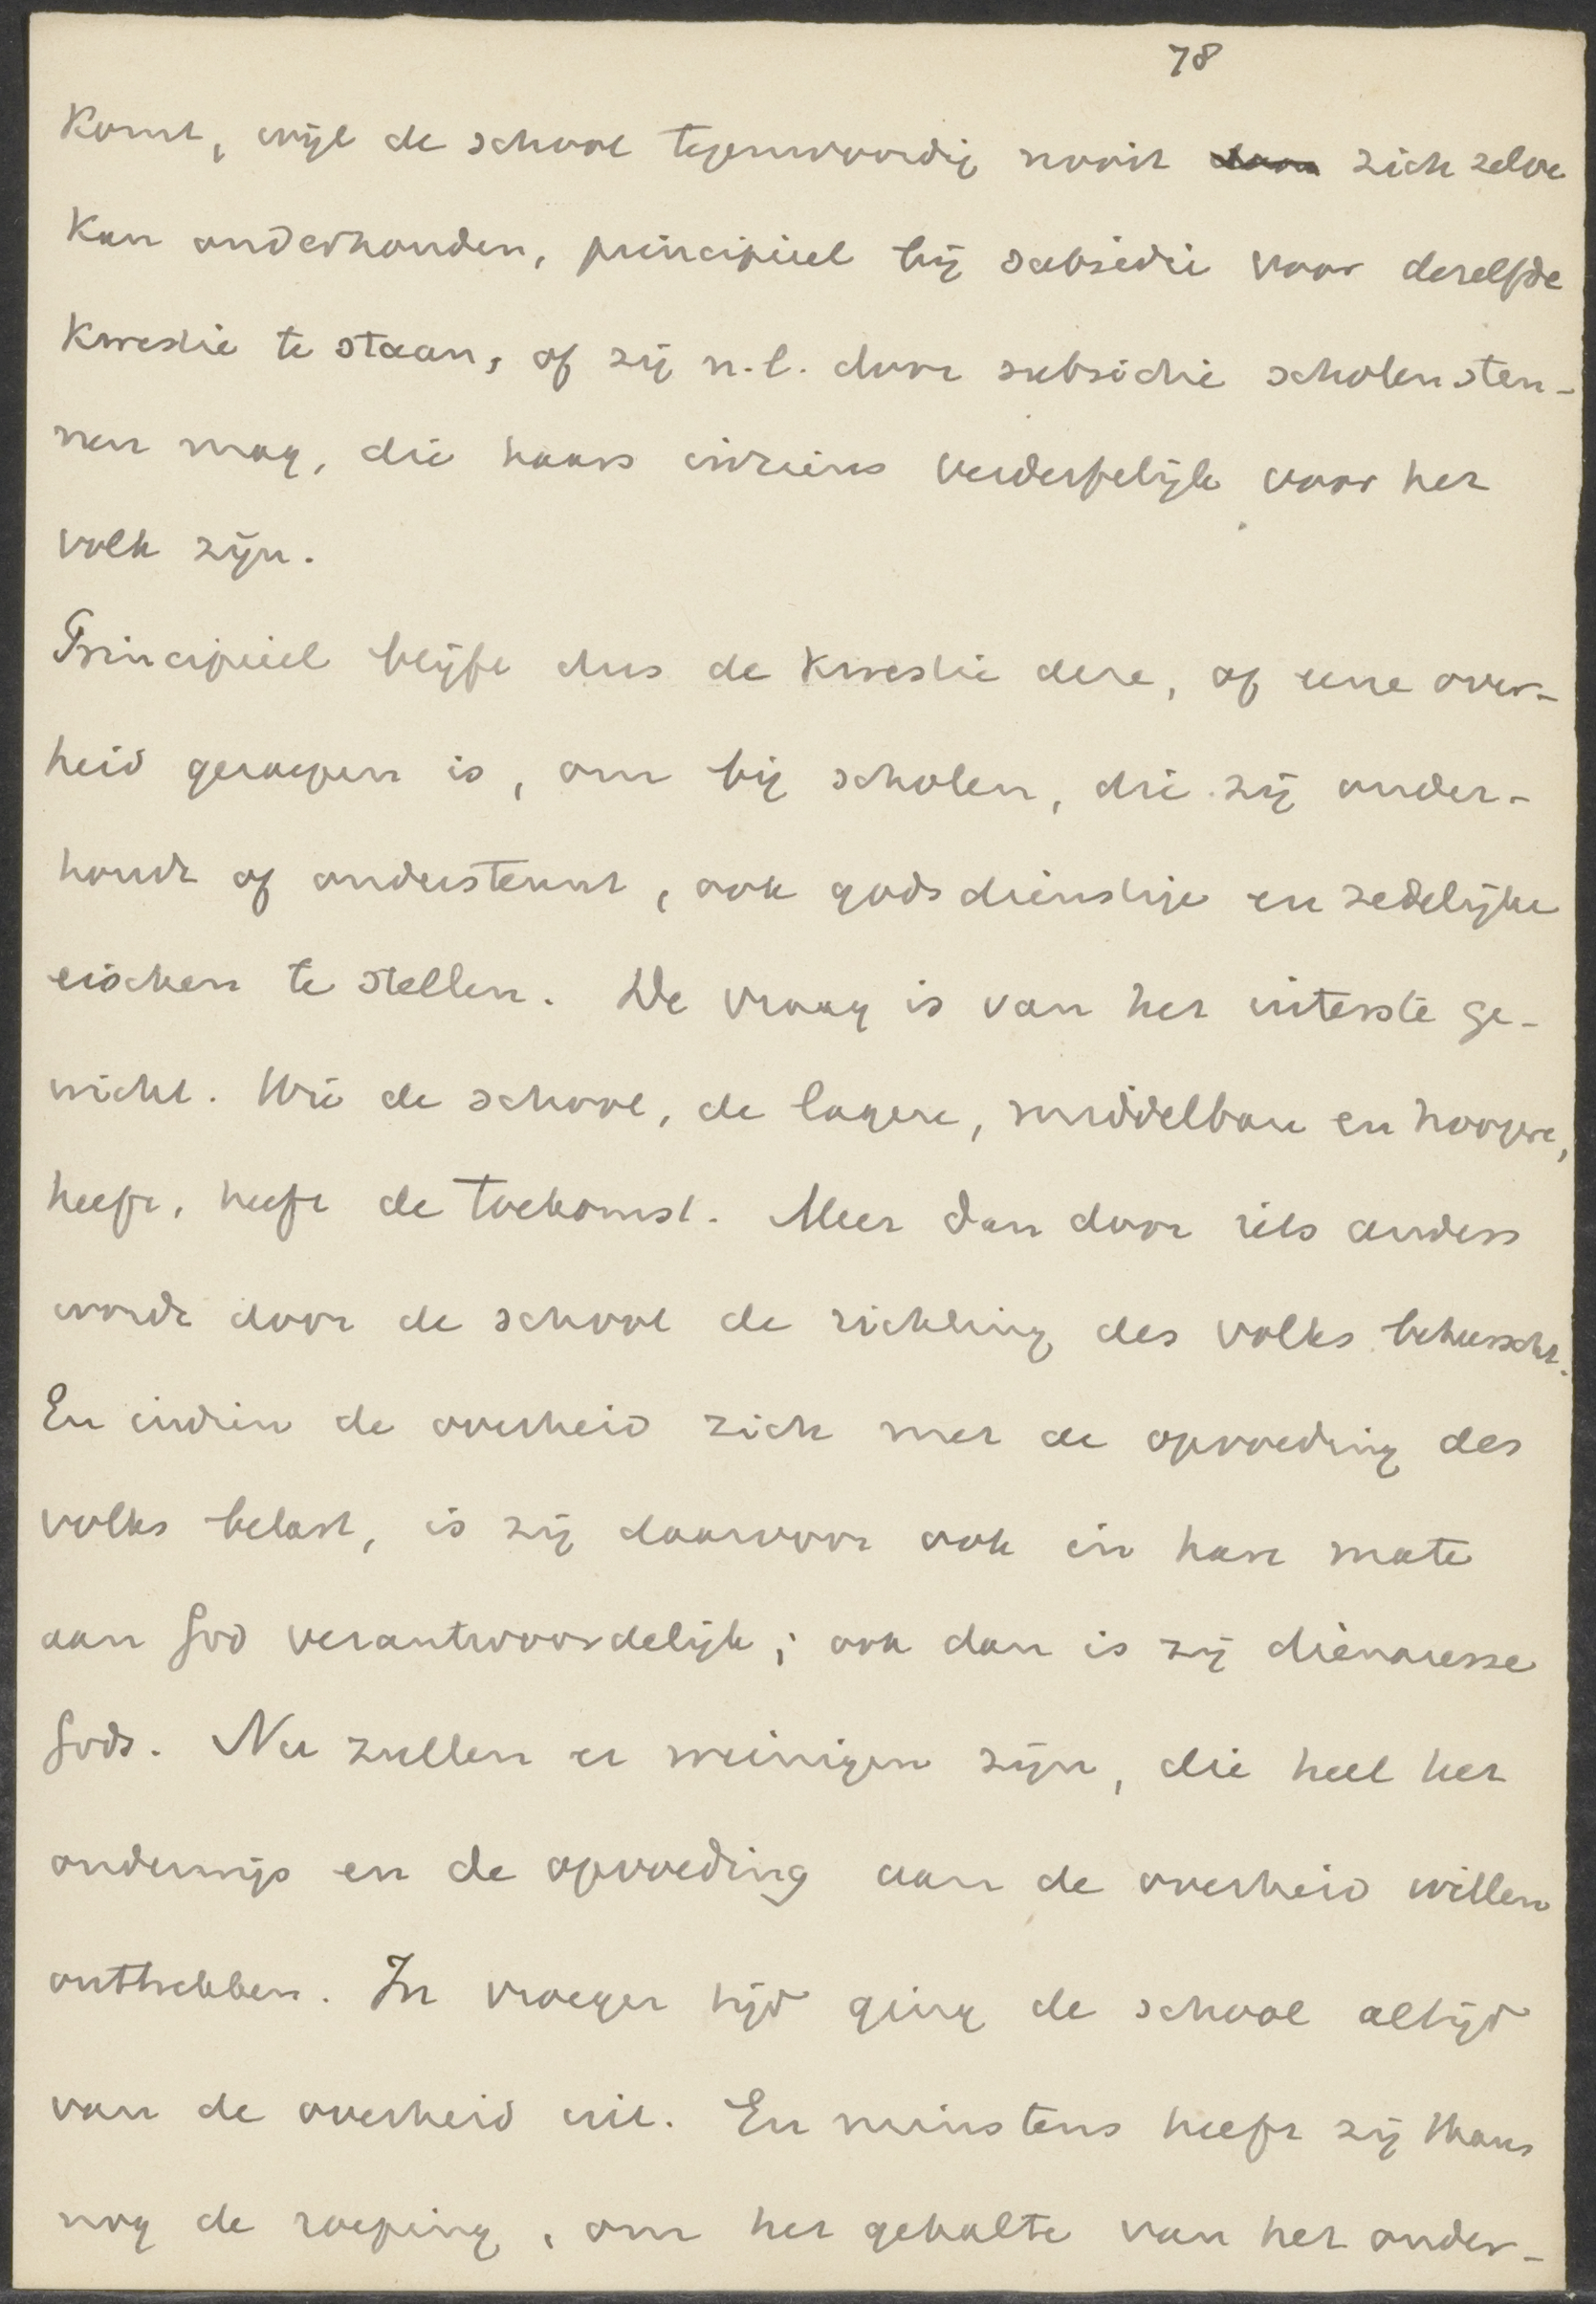 78
komt, wijl de school tegenwoordig nooit zich zelve
kan onderhouden, principieel bij subsidie voor dezelfde
kwestie te staan, of zij n.l. door subsidie scholen steu-
nen mag, die haars inziens verderfelijk voor het
volk zijn.
Principieel blijft dus de kwestie deze, of eene over-
heid geroepen is, om bij scholen, die zij onder-
houdt of ondersteunt, ook godsdienstige en zedelijke
eischen te stellen. De vraag is van het uiterste ge-
wicht. Wie de school, de lagere, middelbare en hoogere,
heeft, heeft de toekomst. Meer dan door iets anders
wordt door de school de richting des volks beheerscht.
En indien de overheid zich met de opvoeding des
volks belast, is zij daarvoor ook in hare mate
aan God verantwoordelijk; ook dan is zij dienaresse
Gods. Nu zullen er weinigen zijn, die heel het
onderwijs en de opvoeding aan de overheid willen
onttrekken. In vroeger tijd ging de school altijd
van de overheid uit. En minstens heeft zij thans
nog de roeping, om het gehalte van het onder-